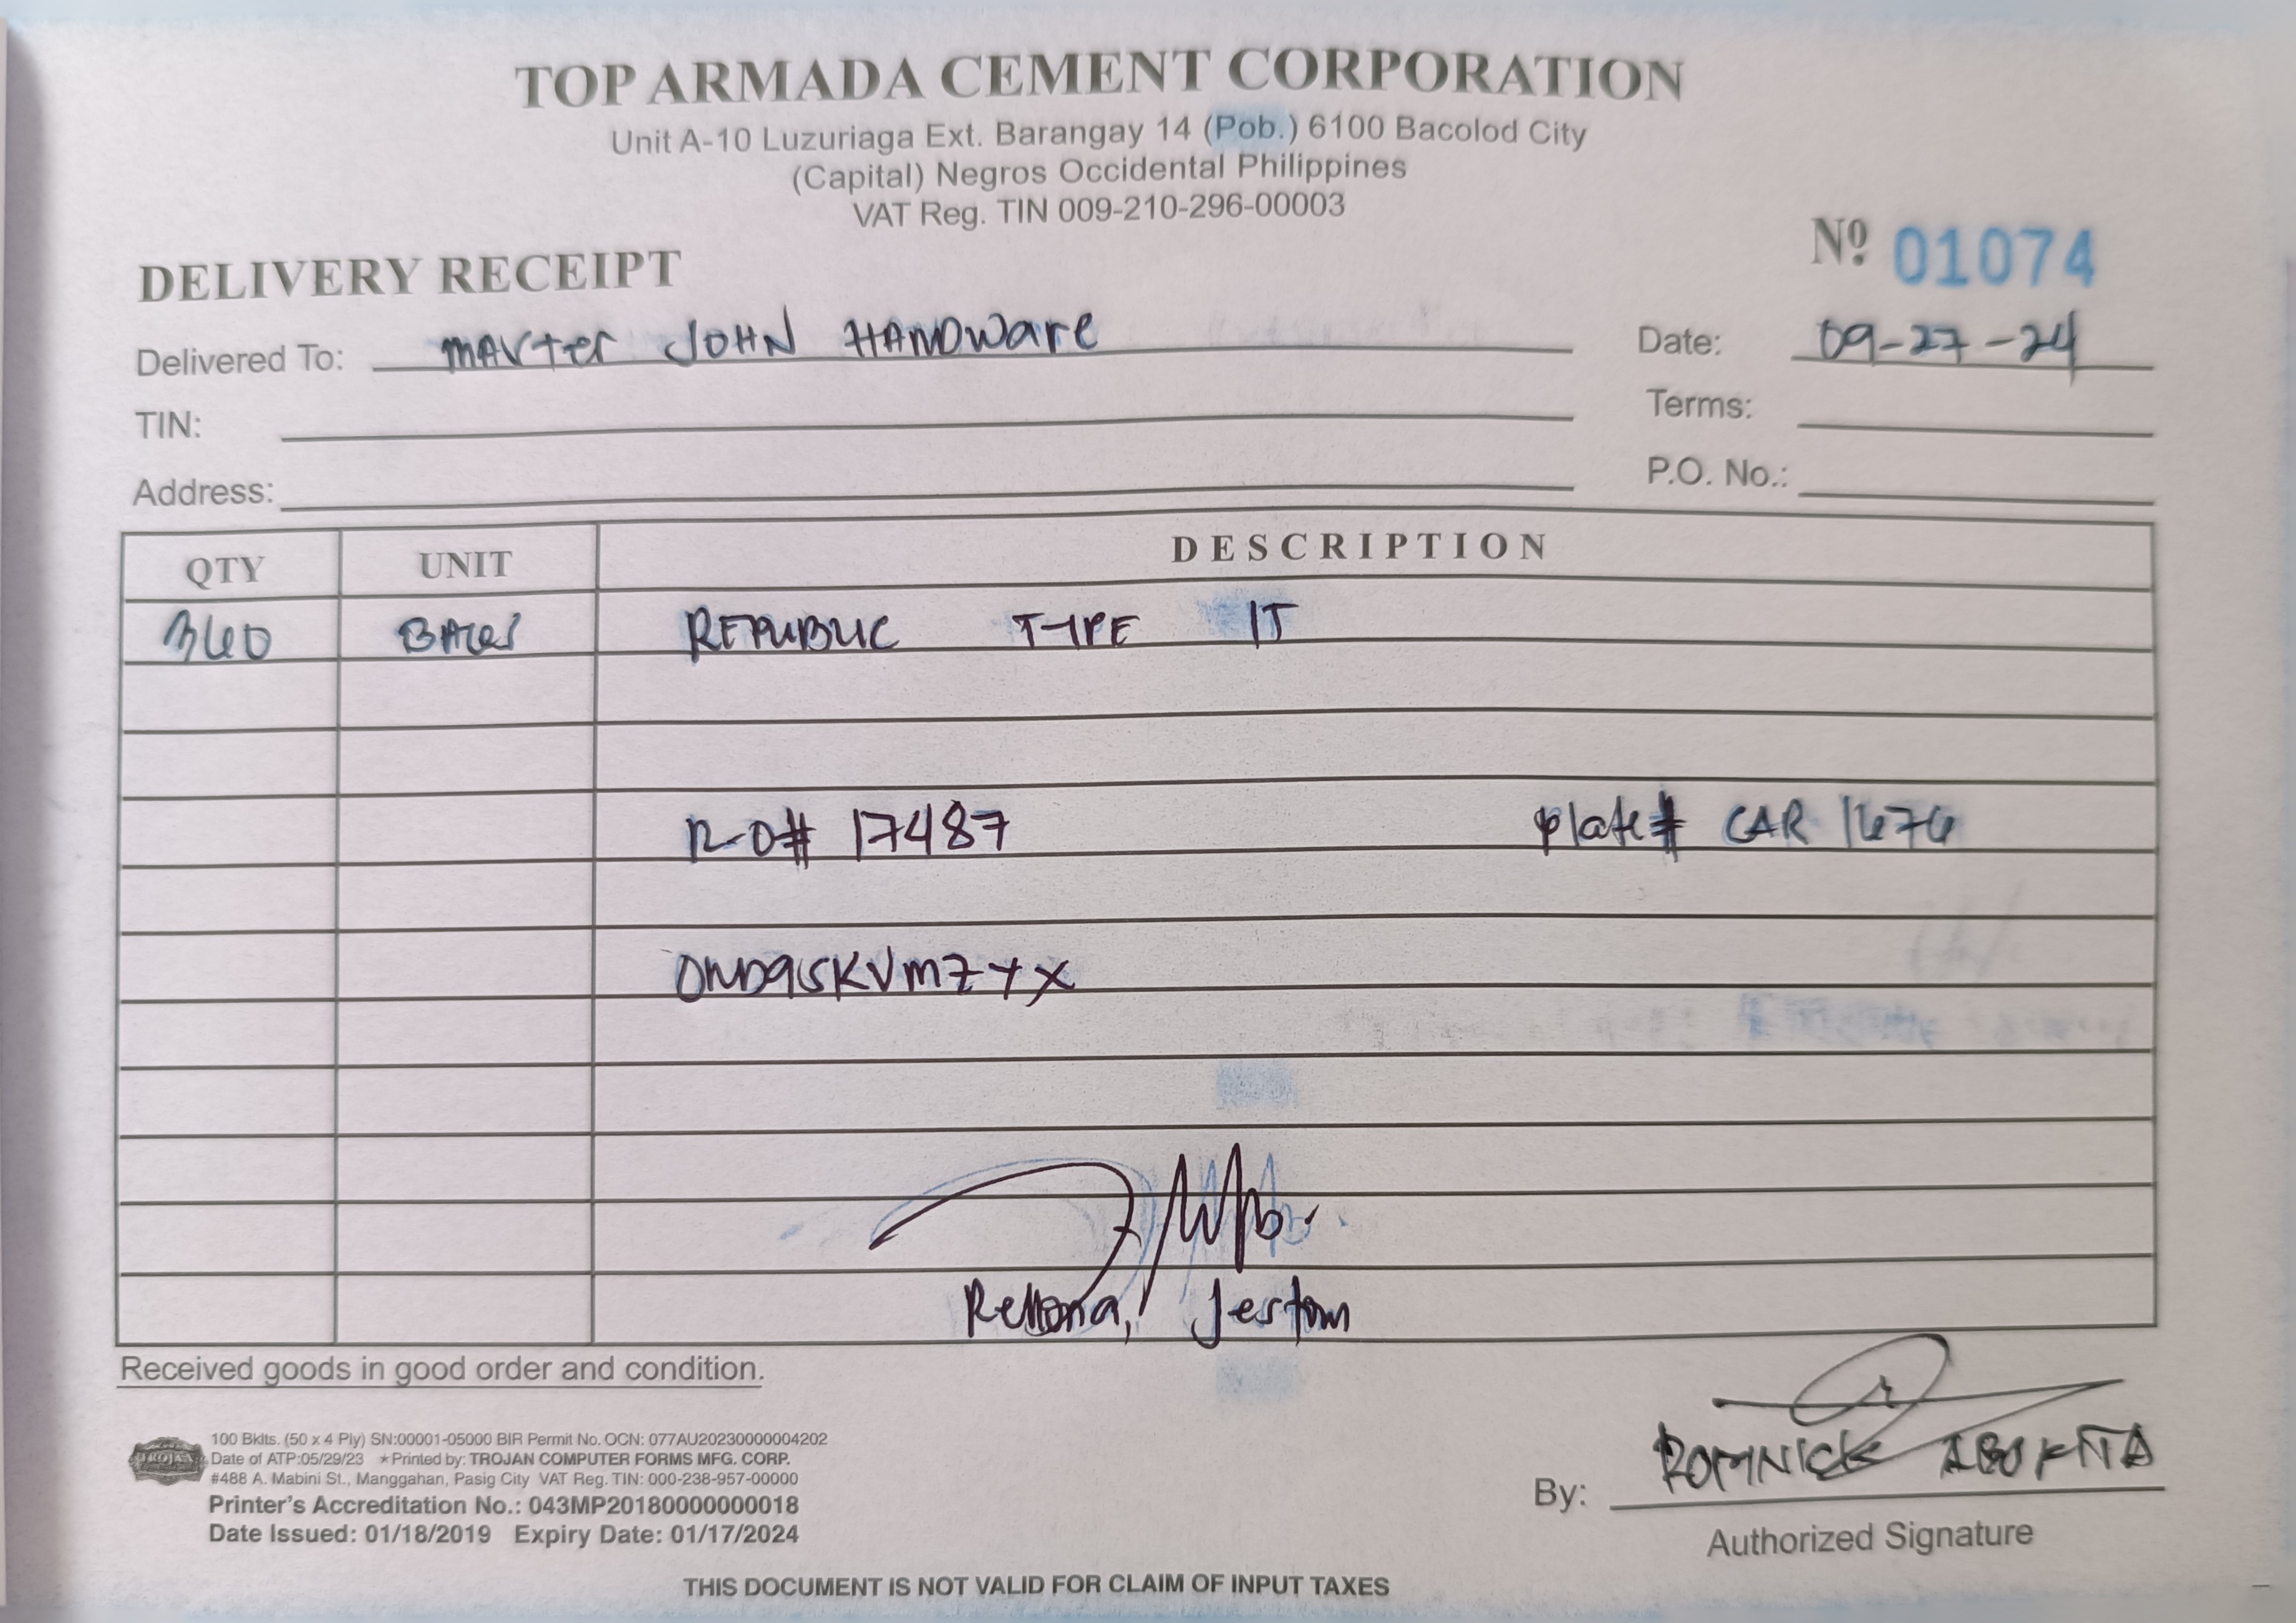 TOP ARMADA CEMENT CORPORATION
Unit A-10 Luzuriaga Ext. Barangay 14 (Pob.) 6100 Bacolod City
(Capital) Negros Occidental Philippines
VAT Reg. TIN 009-210-296-00003
Nº 01074
DELIVERY RECEIPT
Delivered To: MASTER JOHN HARDWARE
Date: 09-27-24
TIN:
Terms:
Address:
P.O. No.:
QTY UNIT DESCRIPTION
360 BAGS REPUBLIC TYPE 1T
R-O# 17487 plate# CAR 1676
Jestom
Received goods in good order and condition.
TROJAN
100 Bklts. (50 x 4 Ply) SN:00001-05000 BIR Permit No. OCN: 077AU20230000004202
Date of ATP:05/29/23 ★Printed by: TROJAN COMPUTER FORMS MFG. CORP.
#488 A. Mabini St., Manggahan, Pasig City VAT Reg. TIN: 000-238-957-00000
Printer's Accreditation No.: 043MP20180000000018
Date Issued: 01/18/2019 Expiry Date: 01/17/2024
By: ROMNICK
Authorized Signature
THIS DOCUMENT IS NOT VALID FOR CLAIM OF INPUT TAXES